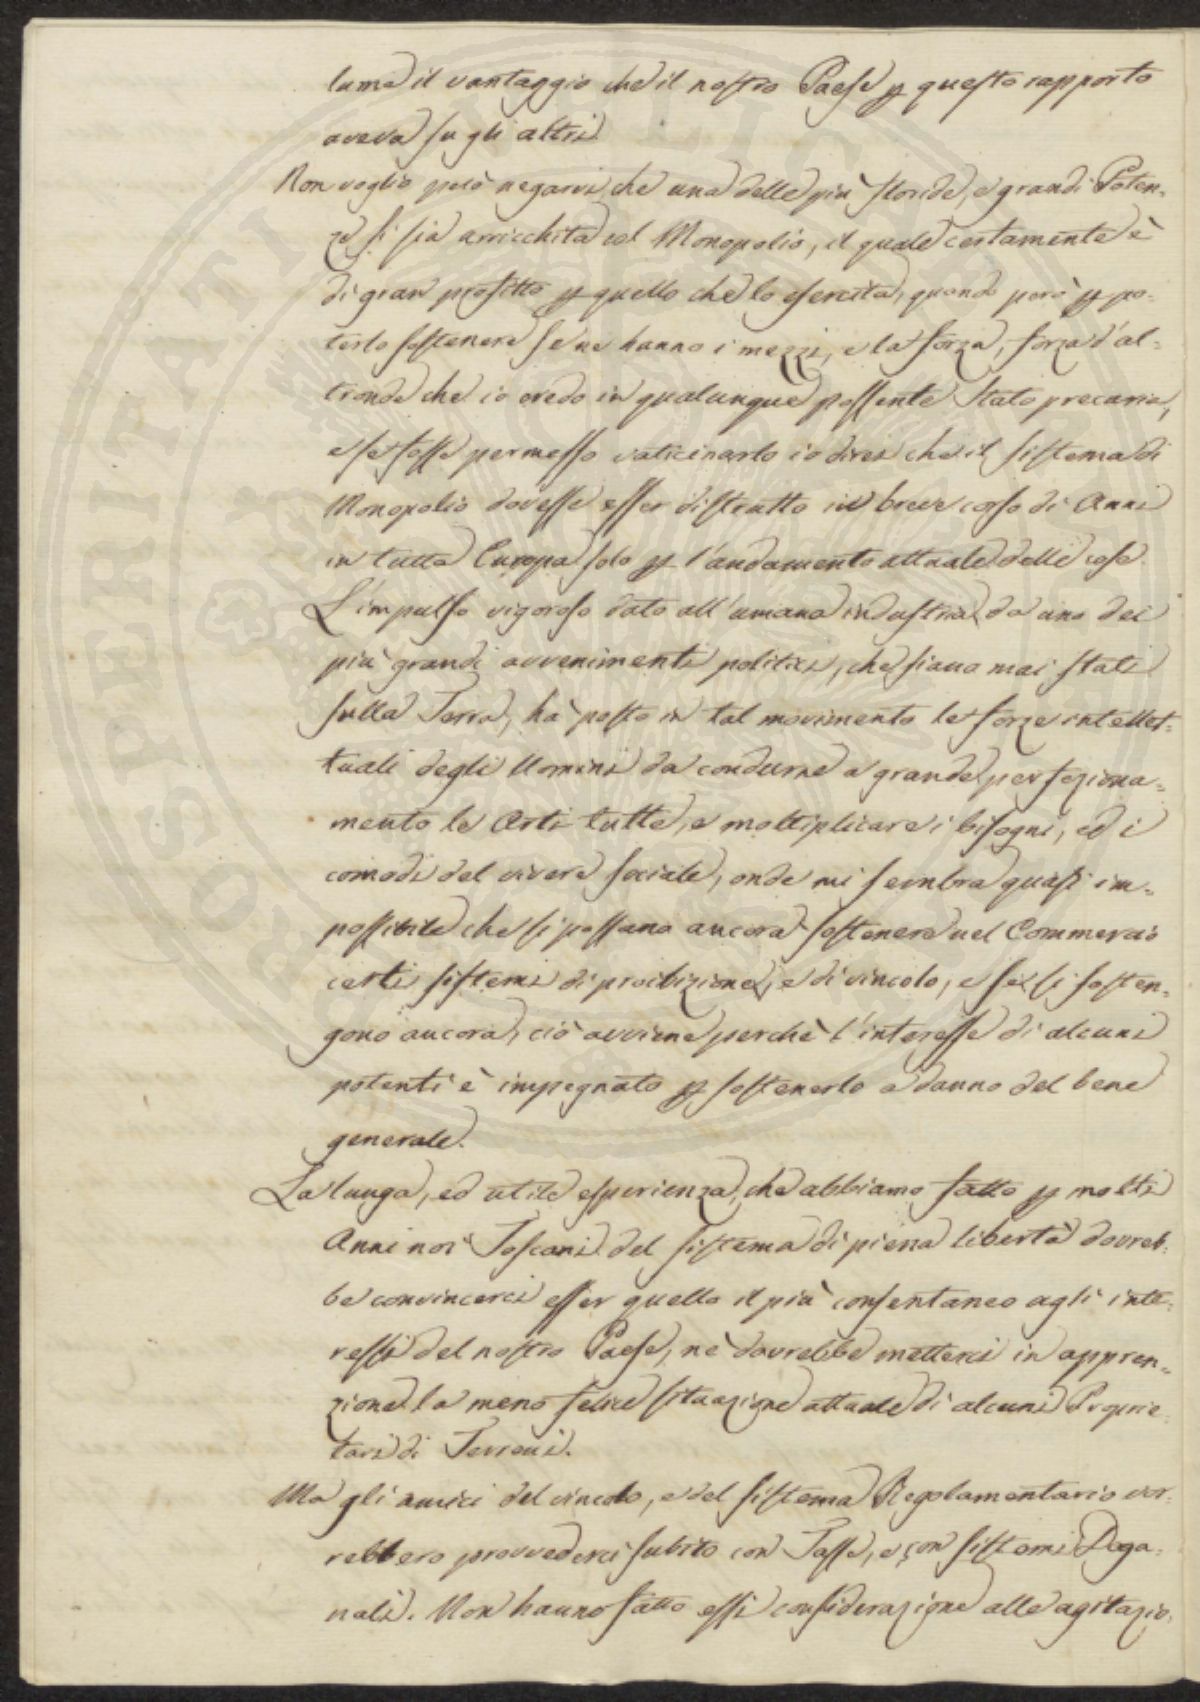 lume il vantaggio che il nostro Paese p questo rapporto
aveva su gli altri
Non voglio però negarvi, che una delle più floride, e grandi Poten=
ze si sia arricchita col Monopolio, il quale certamente è
di gran profitto p quello che lo esercita, quando però p po=
terlo sostenere se ne hanno i mezzi, e la forza, forza d'al=
tronde che io credo in qualunque possente Stato precaria,
e se fosse permesso vaticinarlo io direi che il sistema di
Monopolio dovesse esser distrutto in breve corso di Anni
in tutta Europa solo p l'andamento attuale delle cose.
L'impulso vigoroso dato all'umana industria da uno dei
più grandi avvenimenti politici, che siano mai stati
sulla Terra, hà posto in tal movimento le forze intellet=
tuali degli Uomini da condurne a grande perfeziona=
mento le Arti tutte, e moltiplicare i bisogni, ed i
comodi del vivere sociale, onde mi sembra quasi im=
possibile che si possano ancora sostenere nel Commercio
certi sistemi di proibizione, e di vincolo, e se si sosten=
gono ancora, ciò avviene perchè l'interesse di alcuni
potenti è impegnato p sostenerlo a danno del bene
generale.
La lunga, ed utile esperienza, che abbiamo fatto p molti
Anni noi Toscani del sistema di piena libertà dovreb=
be convincerci esser quello il più consentaneo agli inte=
ressi del nostro Paese, nè dovrebbe metterci in appren=
zione la meno felice situazione attuale di alcuni Proprie=
tari di Terreni.
Ma gli amici del vincolo, e del sistema Regolamentario vor=
rebbero provvederci subito con Tasse, e con sistemi Doga=
nali. Non hanno fatto essi considerazione alle agitazio=
PROSPERITATI PUBLICAE